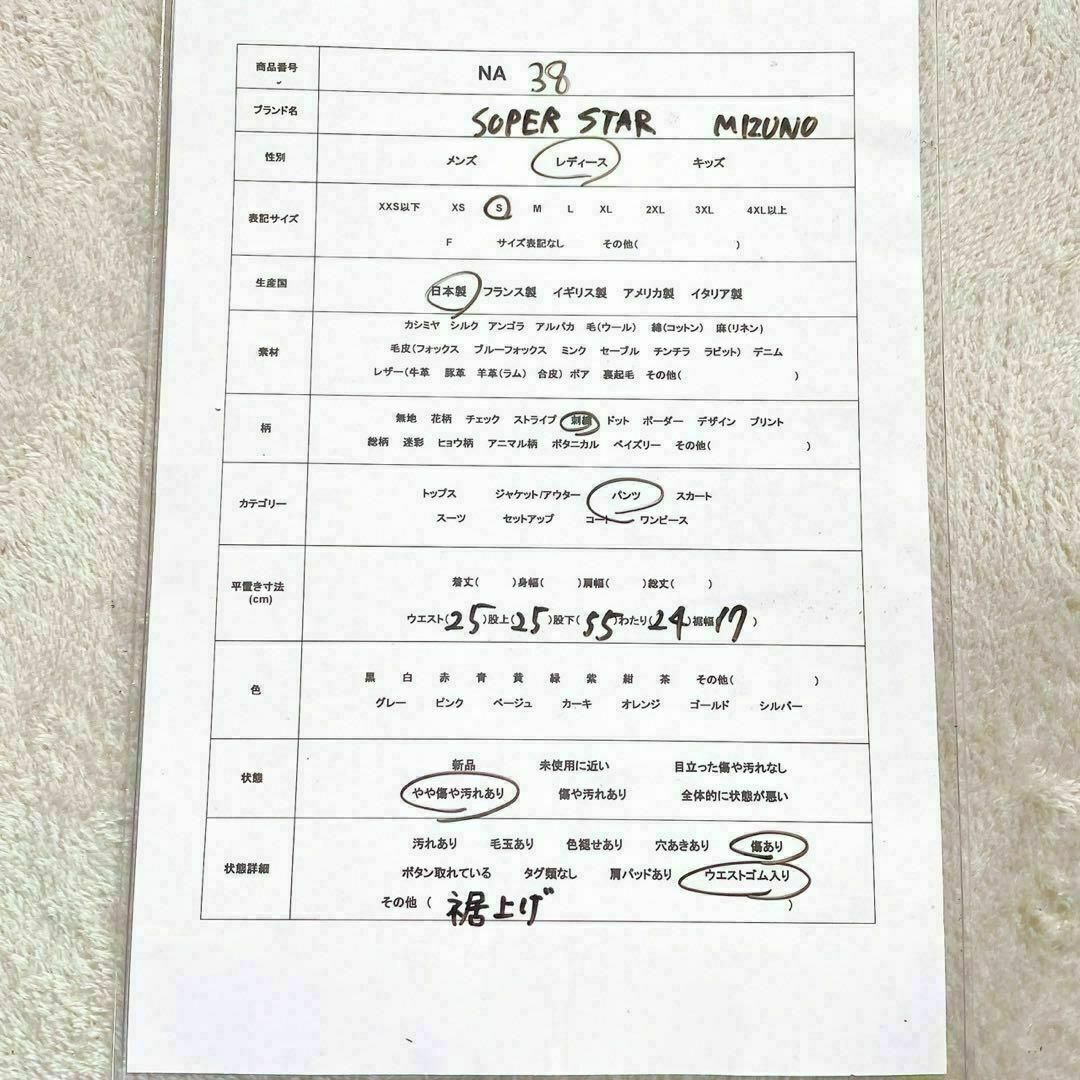 商品番号 NA 38
ブランド名 SOPER STAR MIZUNO
性別 メンズ レディース キッズ
表記サイズ XXS以下 XS S M L XL 2XL 3XL 4XL以上
F サイズ表記なし その他( )
生産国 日本製 フランス製 イギリス製 アメリカ製 イタリア製
素材 カシミヤ シルク アンゴラ アルパカ 毛(ウール) 綿(コットン) 麻(リネン)
毛皮(フォックス ブルーフォックス ミンク セーブル チンチラ ラビット) デニム
レザー(牛革 豚革 羊革(ラム) 合皮) ボア 裏起毛 その他( )
柄 無地 花柄 チェック ストライプ 刺繍 ドット ボーダー デザイン プリント
総柄 迷彩 ヒョウ柄 アニマル柄 ボタニカル ペイズリー その他( )
カテゴリー トップス ジャケット/アウター パンツ スカート
スーツ セットアップ コート ワンピース
平置き寸法
(cm)
着丈( )身幅( )肩幅( )総丈( )
ウエスト(25)股上(25)股下(55)わたり(24)裾幅(17)
色 黒 白 赤 青 黄 緑 紫 紺 茶 その他( )
グレー ピンク ベージュ カーキ オレンジ ゴールド シルバー
状態 新品 未使用に近い 目立った傷や汚れなし
やや傷や汚れあり 傷や汚れあり 全体的に状態が悪い
状態詳細 汚れあり 毛玉あり 色褪せあり 穴あきあり 傷あり
ボタン取れている タグ類なし 肩パッドあり ウエストゴム入り
その他 ( 裾上げ )